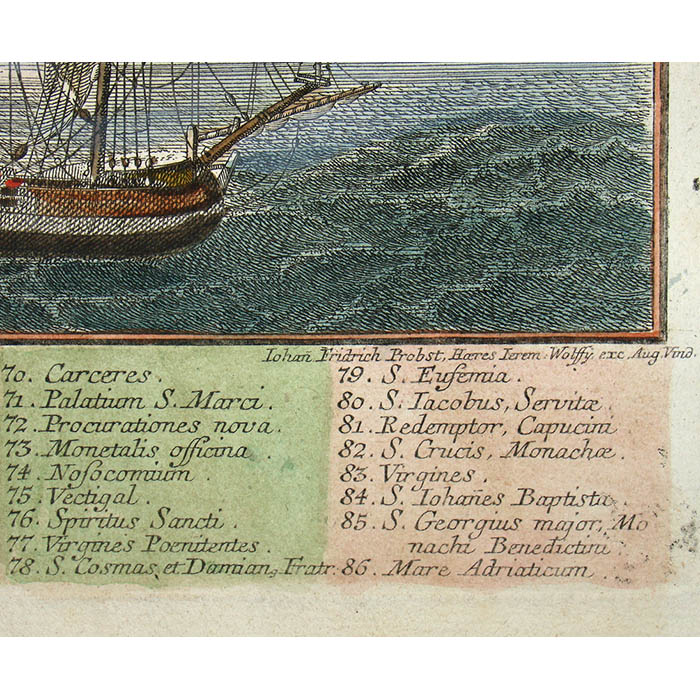 Iohan̄ Fridrich Probst, Hæres Ierem. Wolffÿ, exc. Aug. Vind.
70. Carceres.
71. Palatium S. Marci.
72. Procurationes nova.
73. Monetalis officina
74. Nosocomium.
75. Vectigal.
76. Spiritus Sancti.
77. Virgines Poenitentes.
78. S. Cosmas, et Damian, Fratr.
79. S. Eufemia.
80. S. Iacobus, Servitæ
81. Redemptor, Capucini
82. S. Crucis, Monachæ.
83. Virgines.
84. S. Iohan̄es Baptista
85. S. Georgius major, Mo
nachi Benedictini.
86. Mare Adriaticum.